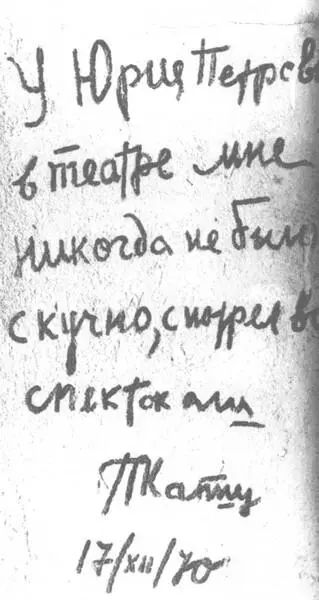 У Юрия Петров
в театре мне
никогда не было
скучно, смотрел вс
спектакали
ПКапиц
17/XII/70